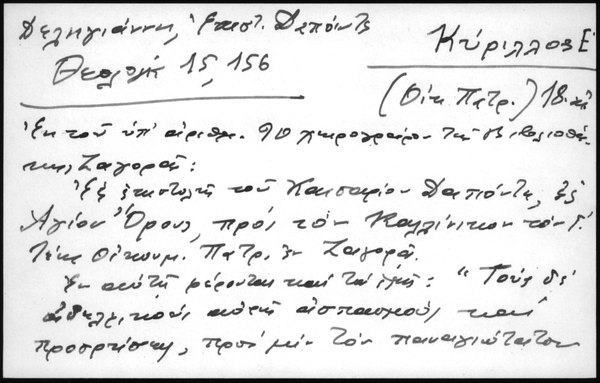 Δεληγιάννη, Ἐπιστ. Δαπόντε
Κύριλλος Ε΄
Θεολογία 15, 156
(Οἰκ. Πατρ.) 18.
Ἐκ τοῦ ὑπ' ἀριθμ. 90 χειρογράφου τῆς Βιβλιοθή-
κης Ζαγορᾶς:
Ἐξ ἐπιστολῆς τοῦ Καισαρίου Δαπόντε, ἐξ
Ἁγίου Ὄρους, πρὸς τὸν Καλλίνικον τὸν Γ΄.
Οἰκουμ. Πατρ. ἐν Ζαγορᾷ.
Ἐν αὐτῇ φέρονται καὶ τὰ ἑξῆς: "Τοὺς δὲ
ἀδελφικοὺς ἀσπασμοὺς καὶ
προσρήσεις, πρὸς μὲν τὸν παναγιώτατον